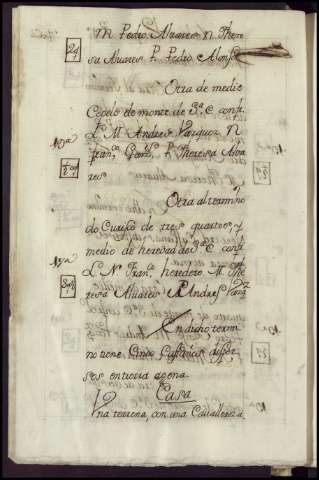 M. Pedro Alvares N. There
sa Alvares P. Pedro Alonso
Otra de medio
Celelo de monte de 3.ª C. conf.
L. M. Andres Vazquez N.
Fran.co P. Theresa Alva
res
Otra al termino
do de tres quartos, y
medio de heredad de 3.ª C. conf.
L. N. Fran.co heredero M. The
resa Alvares P. Andres Vazq.z
En dicho termi
no tiene Cinco Castaños disper
sos en tierra agena
Casa
Una terrena, con una Cavalleriza